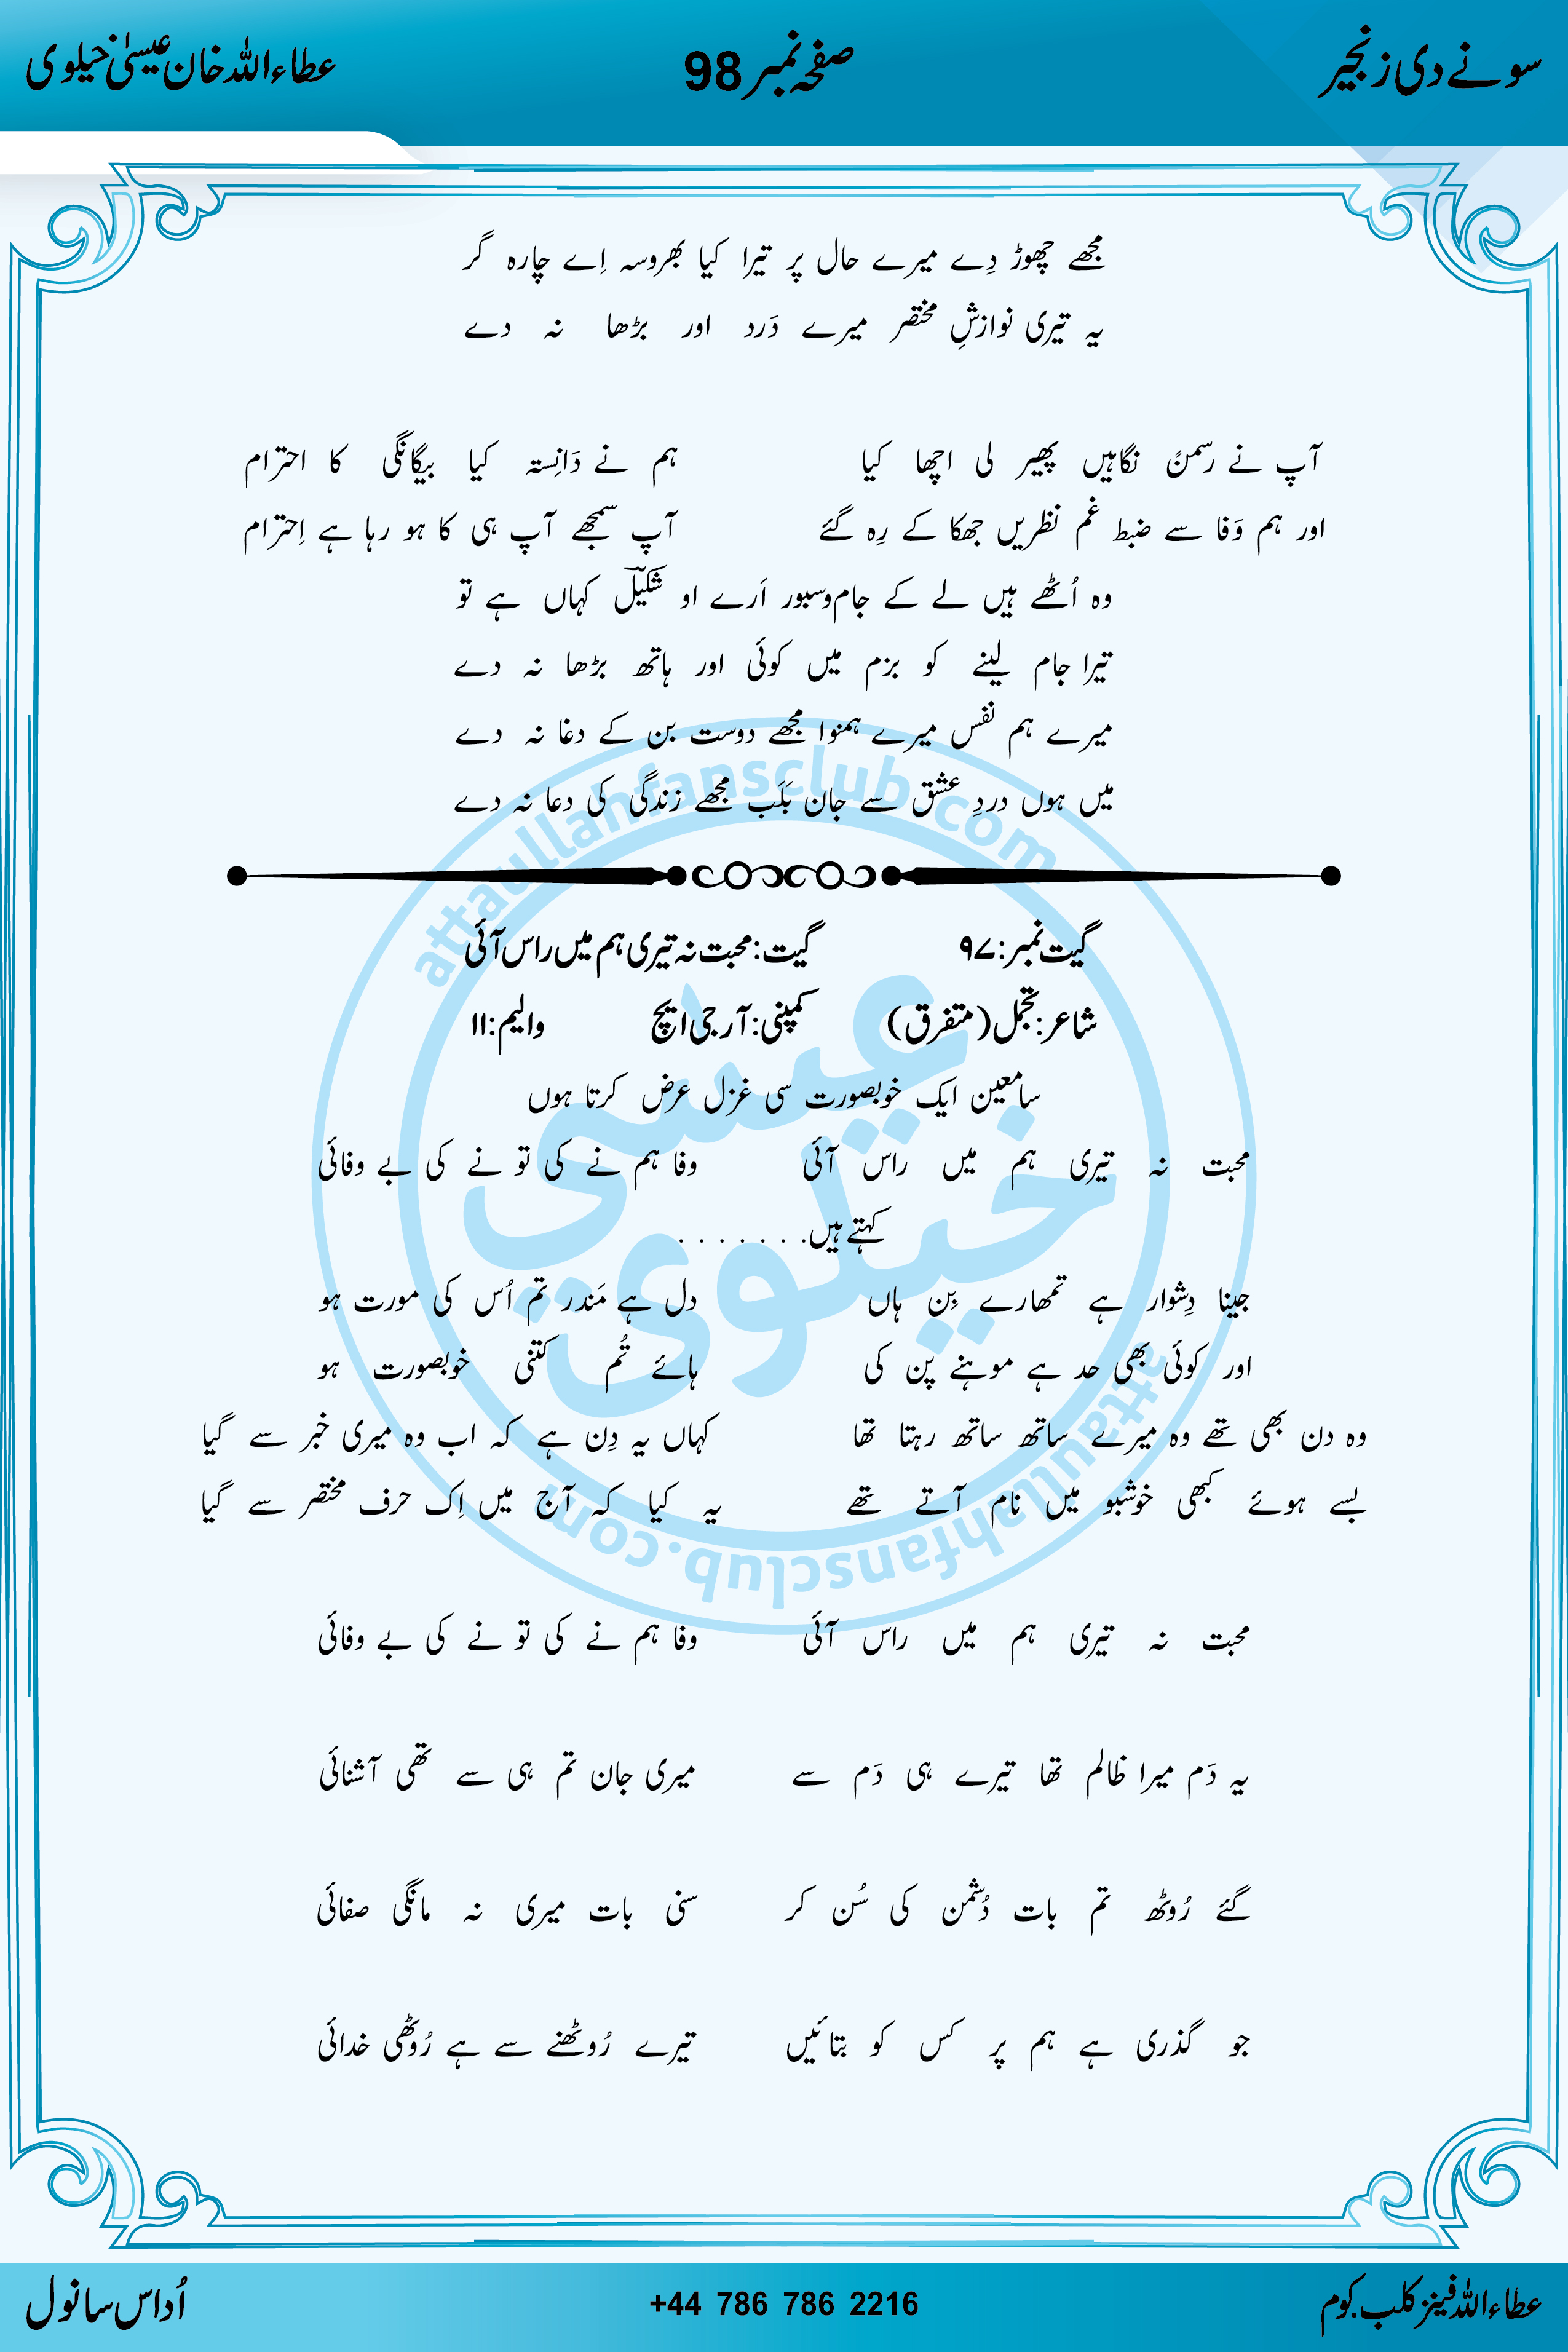 سونے دی زنجیر صفحہ نمبر 98 عطاء اللہ خان عیسیٰ خیلوی
مجھے چھوڑ دِے میرے حال پر تیرا کیا بھروسہ اِے چارہ گر
یہ تیری نوازشِ مختصر میرے دَرد اور بڑھا نہ دے
آپ نے رسمنً نگاہیں پھیر لی اچھا کیا ہم نے دَانِستہ کیا بیگانگی کا احترام
اور ہم وَفا سے ضبط غم نظریں جھکا کے رِہ گئے آپ سمجھے آپ ہی کا ہو رہا ہے اِحترام
وہ اُٹھے ہیں لے کے جام وسبور اَرے او شکیلؔ کہاں ہے تو
تیرا جام لینے کو بزم میں کوئی اور ہاتھ بڑھا نہ دے
میرے ہم نفس میرے ہمنوا مجھے دوست بن کے دغا نہ دے
میں ہوں دردِ عشق سے جان بَلَب مجھے زندگی کی دعا نہ دے
گیت نمبر: ۹۷ گیت: محبت نہ تیری ہم میں راس آئی
شاعر: تجمل (متفرق) کمپنی: آر جی ایچ والیم: ۱۱
سامعین ایک خوبصورت سی غزل عرض کرتا ہوں
محبت نہ تیری ہم میں راس آئی وفا ہم نے کی تو نے کی بے وفائی
کہتے ہیں. . . . . . .
جینا دِشوار ہے تمھارے بِن ہاں دل ہے مَندر تم اُس کی مورت ہو
اور کوئی بھی حد ہے موہنے پن کی ہائے تُم کتنی خوبصورت ہو
وہ دن بھی تھے وہ میرے ساتھ ساتھ رہتا تھا کہاں یہ دِن ہے کہ اب وہ میری خبر سے گیا
بسے ہوئے کبھی خوشبو میں نام آتے تھے یہ کیا کہ آج میں اِک حرف مختصر سے گیا
محبت نہ تیری ہم میں راس آئی وفا ہم نے کی تو نے کی بے وفائی
یہ دَم میرا ظالم تھا تیرے ہی دَم سے میری جان تم ہی سے تھی آشنائی
گئے رُوٹھ تم بات دُشمن کی سُن کر سنی بات میری نہ مانگی صفائی
جو گذری ہے ہم پر کس کو بتائیں تیرے رُوٹھنے سے ہے رُوٹھی خدائی
attaullahfansclub.com
عیسٰی
خیلوی
attaullahfansclub.com
عطاء اللہ فینز کلب. کوم +44 786 786 2216 اُداس سانول